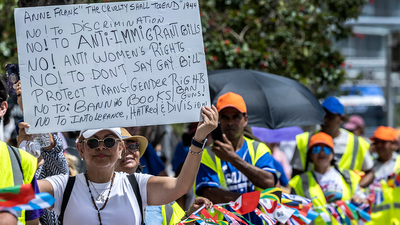 ANNE FRANK "THE CRUELTY SHALL TO END" 1944
NO! TO DISCRIMINATION
NO! TO ANTI-IMMIGRANT BILLS
NO! ANTI WOMEN'S RIGHTS
NO! TO DON'T SAY GAY BILL
PROTECT TRANS-GENDER RIGHT
NO TO: BANNING BOOKS BAN GUNS!
NO TO INTOLERANCE, HATRED & DIVISION